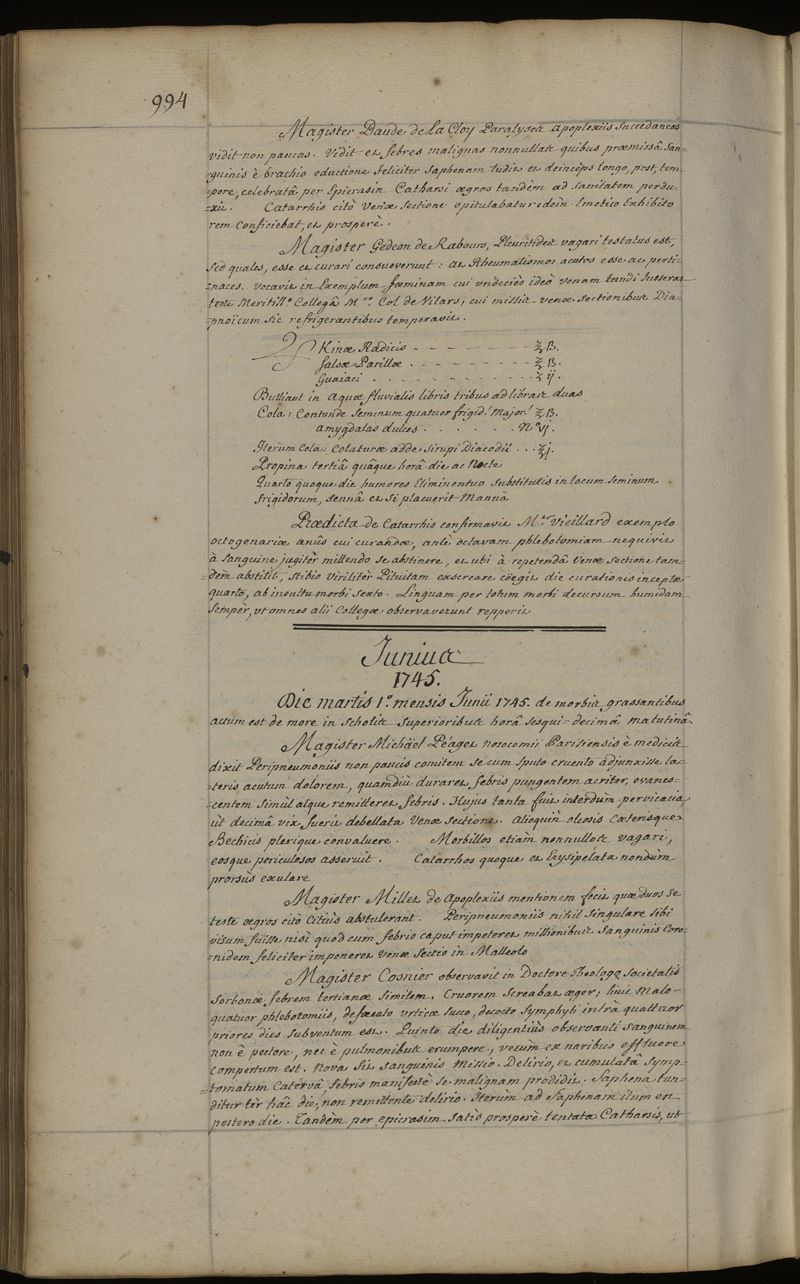 994
Magister Baude de la Cloy Paralyses apoplexiis succedaneas
vidit non paucas. Vidit et febres malignas nonnullas quibus præmissâ San=
=guinis è brachio eductione feliciter Saphenam tudit et deinceps longo, post, tem=
=pore, celebratâ per Epicrasin Catharsi ægros tandem ad sanitatem perdu=
=xit. Catarrhis citò Venæ Sectione opitulabatur; dein Emetico Exhibito
rem Conficiebat, et prosperè.
Magister Gedeon de Rabours, Pleuritides vagari testatus est,
sed quales, esse et curari consueverunt: at Rheumatismos acutos esse ac perti=
=naces. Vocavit in Exemplum fœminam cui undeciès ideò venam tundi Jusserat
teste Meritiss.º Collegâ M.ro Col de Vilars; cui missis venæ Sectionibus Dia=
=pnoïcum sic refrigerantibus temperavit.
♃ Kinæ Radicis - - - - - - - - - ℥ ß.
salsæ-Parillæ . - - - - - - - - ℥ ß.
Guaiaci . . . - - - - - - - - - ʒ ij.
Bulliant in aquæ fluvialis libris tribus ad libras duas
Cola: Contunde Seminum quatuor frigid. Major. ℥ ß.
amygdalas dulces . . . . . . . N.º vj.
Iterum Cola: Colaturæ adde, Sirupi Diacodii . . . ℥j.
Propina tertiâ quâque horâ die ac Nocte
Quarto quoque die humores Eliminentur Substitutis in locum seminum
frigidorum, sennâ et si placuerit Mannâ
Prædicta de Catarrhis confirmavit M.er Vieillard exemplo
octogenariæ anûs cui curandæ, antè octavam phlebotomiam nequivit
à Sanguine jugitèr mittendo se abstinere, et ubi à repetendâ Venæ Sectione tan=
=dem abstitit, stibio viriliter Pituitam exscreare cöegit die curationis inceptæ
quarto, ab insultu morbi sexto. Linguam per totum morbi decursum humidam
semper, ut omnes alii Collegæ observaverunt repperit
Junius
1745.
Die martis 1.º mensis Junii 1745. de morbis grassantibus
actum est de more in Scholis Superioribus horâ sesqui-decimâ matutinâ.
Magister Michäel Péaget nosocomii Parisiensis è medicis
dixit Peripneumoniis non paucis comitem se cum sputo cruento adjunxisse la=
=teris acutum dolorem, quamdiù duraret febris pungentem acriter, evanes=
=centem simùl atque remitteret febris. Hujus tanta fuit interdùm pervicacia
ut decimâ vix fuerit debellata Venæ Sectione. Alioquin oleosis Cæterisque
Bechicis plerique convaluere. Morbillos etiam nonnullos vagari,
eosque periculosos asseruit. Catarrhos quoque et Erysipelata nondùm
prorsùs exulare
Magister Millet de Apoplexiis mentionem fecit quæ duos se
teste ægros citò Citiùs abstulerant. Peripneumoniis nihil singulare sibi
visum fuisse nisi quod cum febris caput impeteret missionibus Sanguinis Coro=
=nidem feliciter imponeret Venæ Sectio in Malleolo
Magister Cosnier observavit in Doctore Theologo Societatis
Sorbonæ, febrem tertianæ similem. Cruorem Screabat æger; huic malo
quatuor phlebotomiis, defæcato urticæ succo, decocto Symphyti intrà quattuor
priores dies subventum est. Quinto die diligentiùs observanti sanguinem
non è pectore, nec è pulmonibus erumpere, verum ex naribus effluere
Compertum est. Nova fit sanguinis Missio. Delirio, et cumulatâ Symp=
=tomatum Catervâ, febris manifestè se malignam prodidit. Saphena tun=
ditur ter hâc die, non remittente delirio. Iterum ad Saphenam itum est
postero die. Tandèm per epicrasim satis prosperè tentata Catharsis, ut